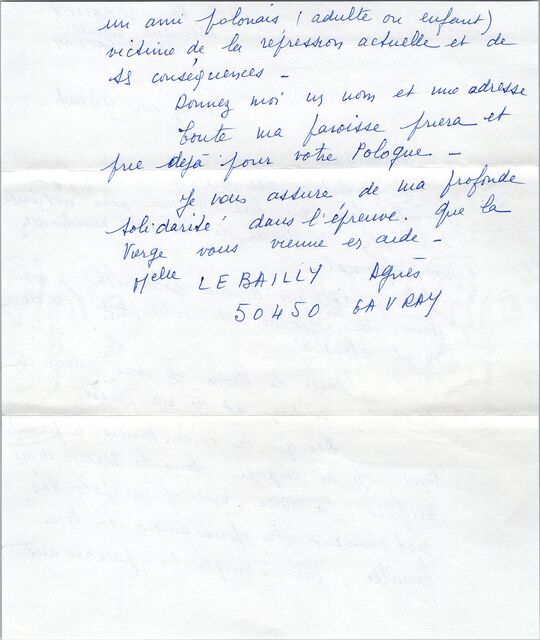 un ami polonais (adulte ou enfant)
victime de la répression actuelle et de
ses conséquences -
Donnez moi un nom et une adresse
toute ma paroisse priera et
prie déjà pour votre Pologne -
Je vous assure de ma profonde
solidarité dans l'épreuve. Que la
Vierge vous vienne en aide -
Melle LEBAILLY Agnès
50450 GAVRAY